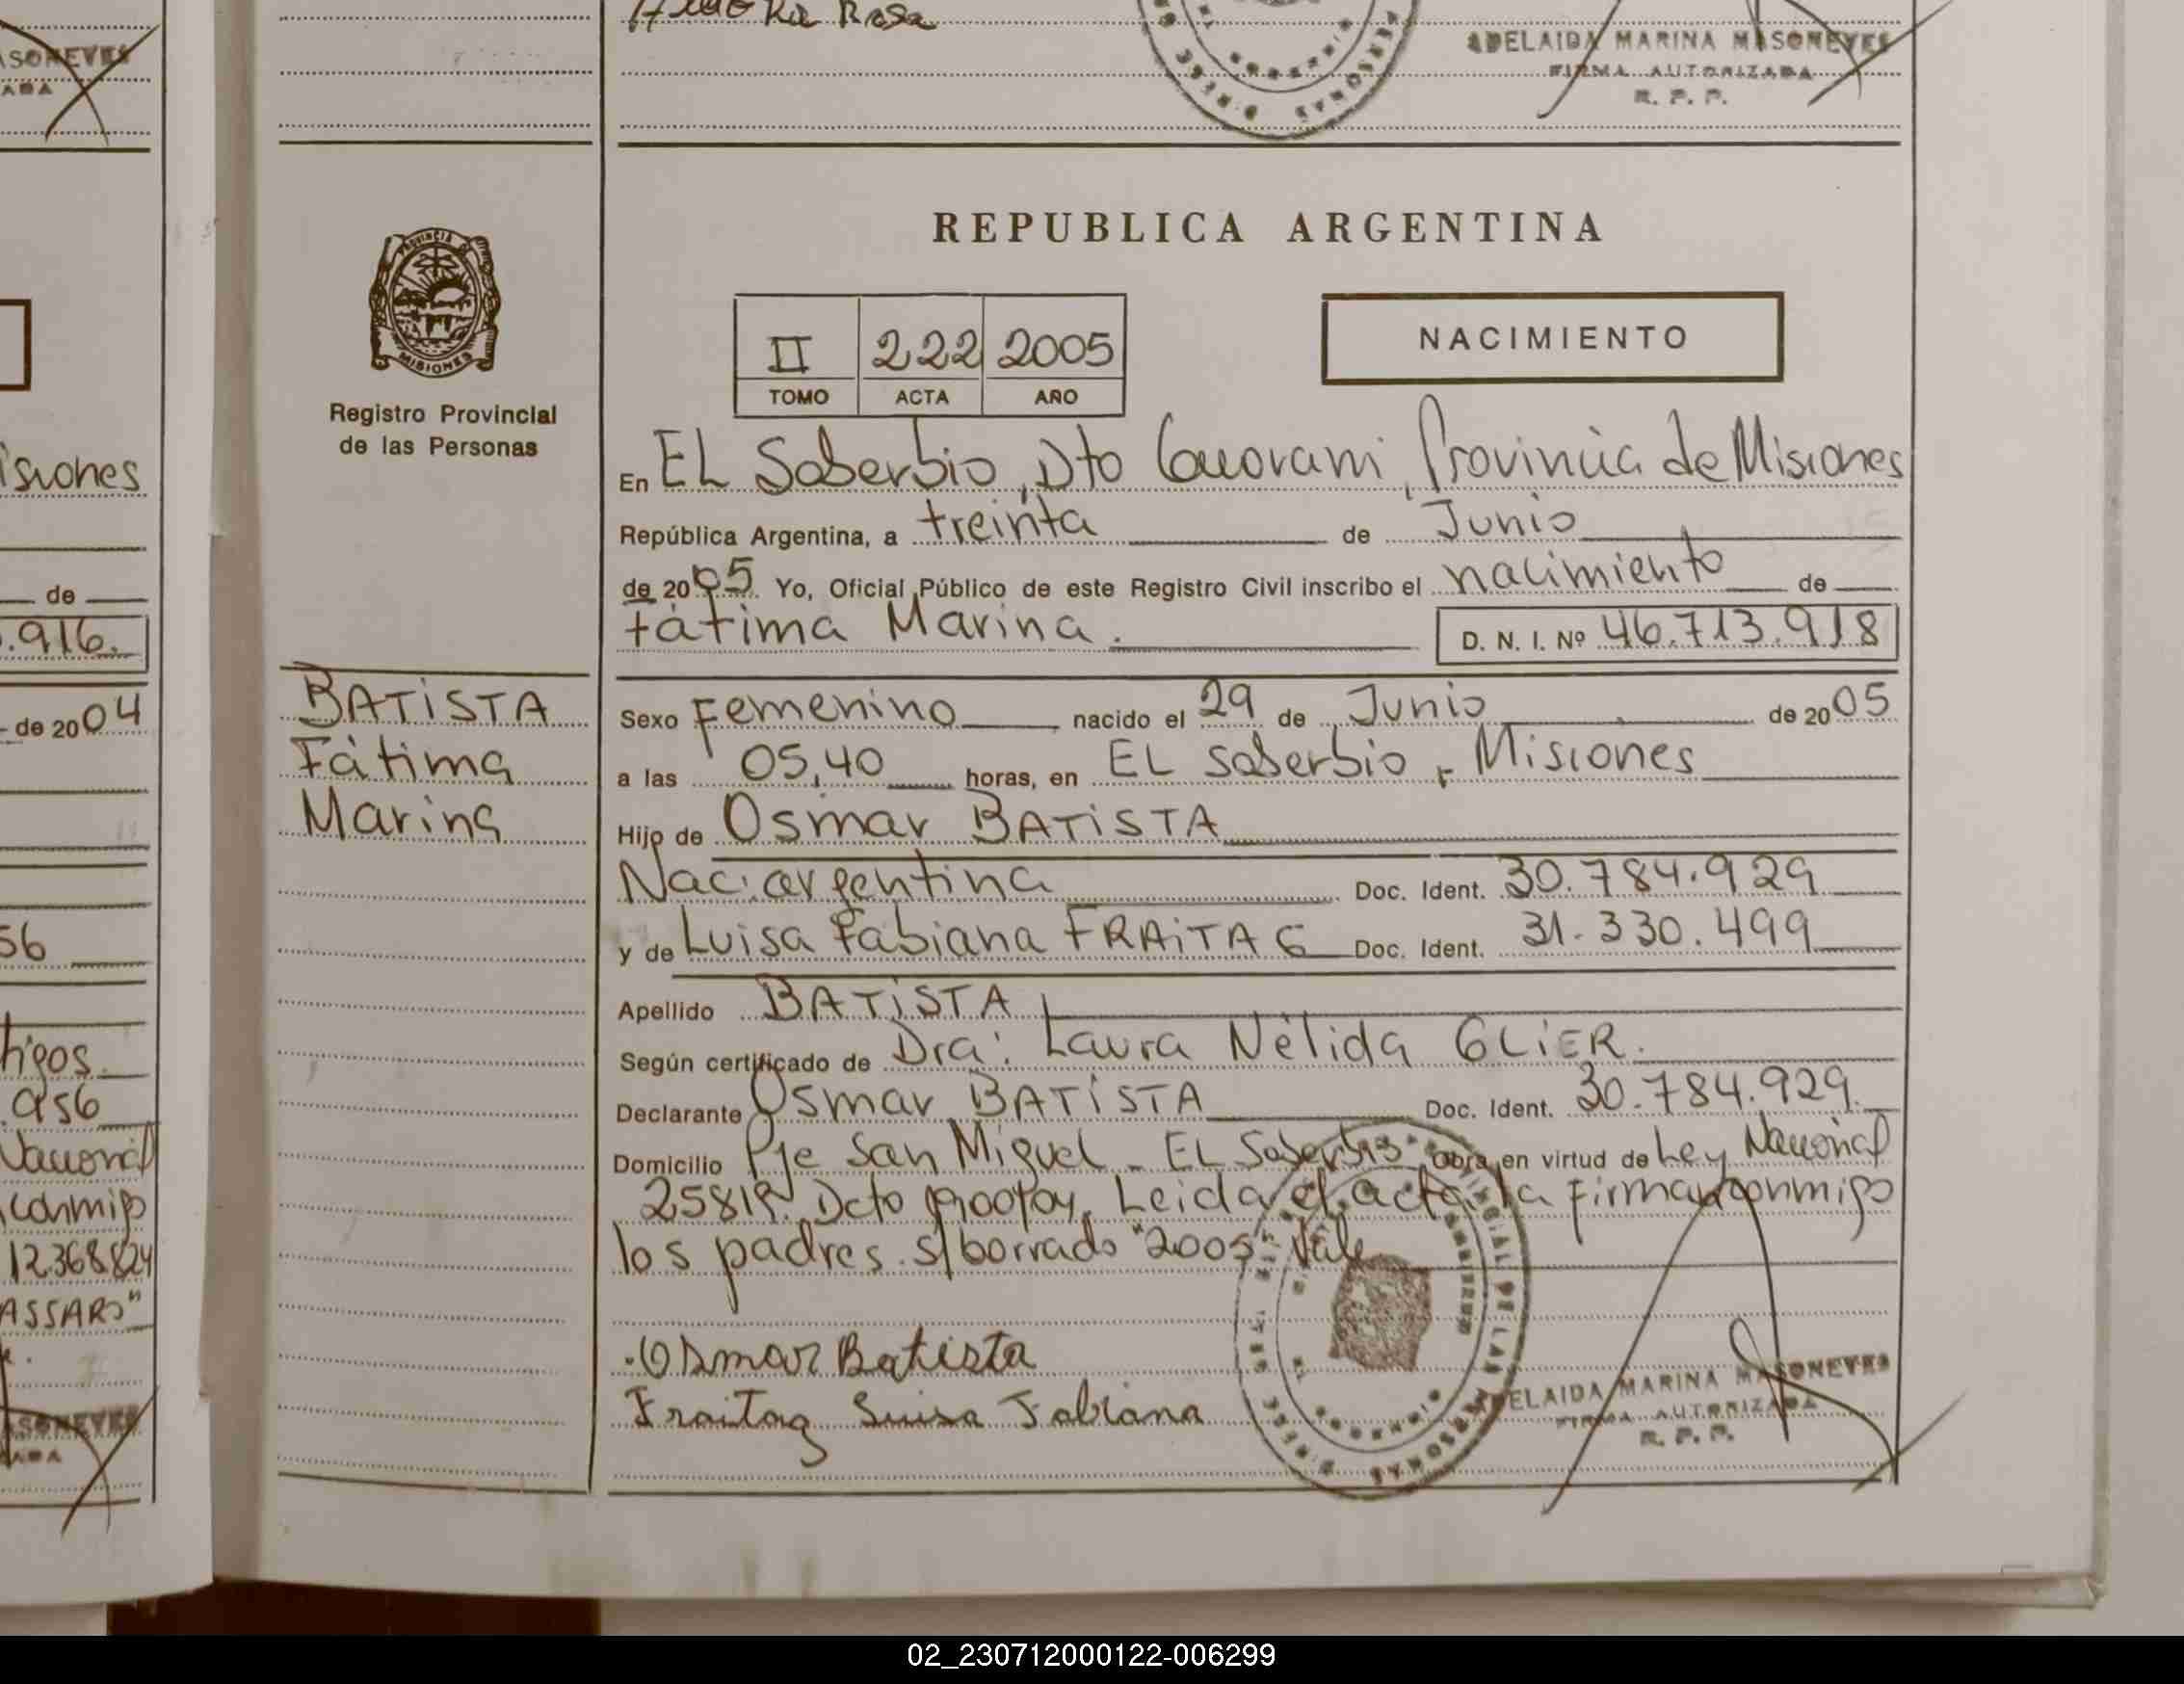 Rosa
ADELAIDA MARINA MASONEVES
FIRMA AUTORIZADA
R. P. P.
SONEVES
ADA
isiones
de
.916.
de 2004
56
tigos
956
Nacional
conmigo
12368824
ASSARO"
PROVINCIA DE
MISIONES
Registro Provincial
de las Personas
BATISTA
Fátima
Marina
REPUBLICA ARGENTINA
II 222 2005
TOMO ACTA AÑO
NACIMIENTO
En EL Soberbio, Dto Guarani, Provincia de Misiones
República Argentina, a treinta de Junio
de 2005 Yo, Oficial Público de este Registro Civil inscribo el nacimiento de
Fátima Marina. D. N. I. Nº 46.713.918
Sexo Femenino nacido el 29 de Junio de 2005
a las 05,40 horas, en EL Soberbio, Misiones
Hijo de Osmar BATISTA
Nac: argentina Doc. Ident. 30.784.929
y de Luisa Fabiana FRAITAG Doc. Ident. 31.330.499
Apellido BATISTA
Según certificado de Dra: Laura Nélida GLIER.
Declarante Osmar BATISTA Doc. Ident. 30.784.929.
Domicilio Pje San Miguel - EL Soberbio Obra en virtud de Ley Nacional
25819. Dcto 1900/04. Leida el acta la firman conmigo
los padres. s/borrado "2005". Vale
Osmar Batista
Fraitag Luisa Fabiana
ADELAIDA MARINA MASONEVES
FIRMA AUTORIZADA
R. P. P.
02_230712000122-006299